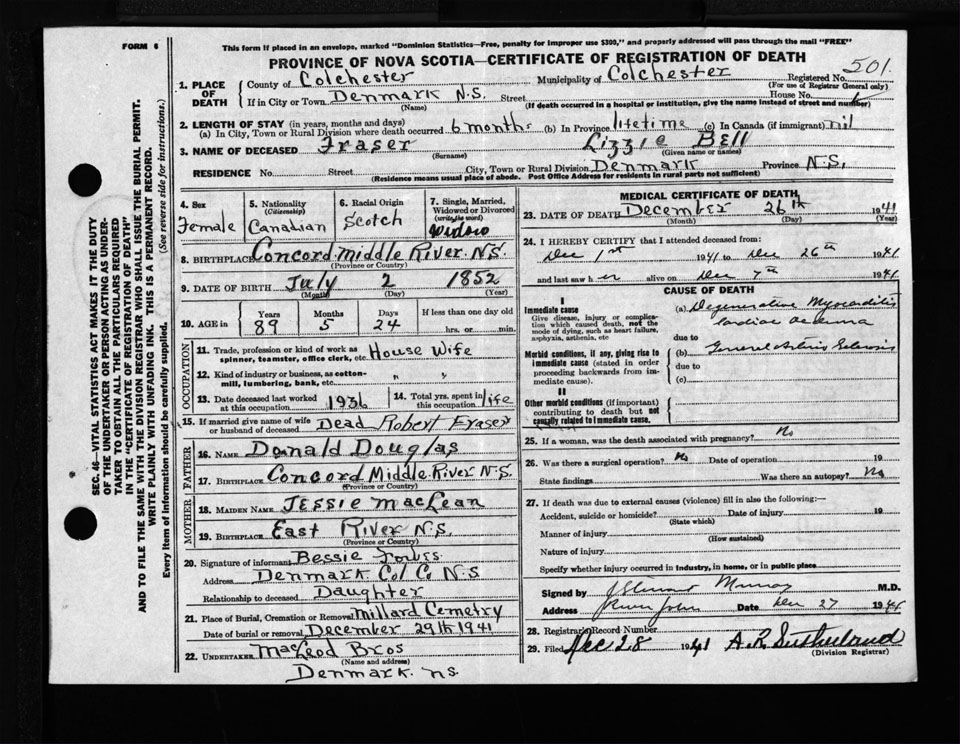 FORM 6
This form if placed in an envelope, marked "Dominion Statistics—Free, penalty for improper use $300," and properly addressed will pass through the mail "FREE"
PROVINCE OF NOVA SCOTIA—CERTIFICATE OF REGISTRATION OF DEATH
501
1. PLACE OF DEATH
County of Colchester Municipality of Colchester Registered No.
(For use of Registrar General only)
If in City or Town Denmark N.S. Street House No.
(Name) (If death occurred in a hospital or institution, give the name instead of street and number)
2. LENGTH OF STAY (in years, months and days)
(a) In City, Town or Rural Division where death occurred 6 months (b) In Province lifetime (c) In Canada (if immigrant) nil
3. NAME OF DECEASED Fraser Lizzie Bell
(Surname) (Given name or names)
RESIDENCE No. Street City, Town or Rural Division Denmark Province N.S.
(Residence means usual place of abode. Post Office Address for residents in rural parts not sufficient)
4. Sex
Female
5. Nationality
(Citizenship)
Canadian
6. Racial Origin
Scotch
7. Single, Married, Widowed or Divorced
(write the word)
Widow
8. BIRTHPLACE Concord Middle River N.S.
(Province or Country)
9. DATE OF BIRTH July 2 1852
(Month) (Day) (Year)
10. AGE in
Years Months Days If less than one day old
89 5 24 hrs. or min.
OCCUPATION
11. Trade, profession or kind of work as spinner, teamster, office clerk, etc. House Wife
12. Kind of industry or business, as cotton-mill, lumbering, bank, etc. " "
13. Date deceased last worked at this occupation 1936
14. Total yrs. spent in this occupation life
15. If married give name of wife or husband of deceased Dead Robert Fraser
FATHER
16. NAME Donald Douglas
17. BIRTHPLACE Concord Middle River N.S.
(Province or Country)
MOTHER
18. MAIDEN NAME Jessie MacLean
19. BIRTHPLACE East River N.S.
(Province or Country)
20. Signature of informant Bessie Forbes
Address Denmark Col Co N.S
Relationship to deceased Daughter
21. Place of Burial, Cremation or Removal Millard Cemetry
Date of burial or removal December 29th 1941
22. UNDERTAKER MacLeod Bros
(Name and address)
Denmark. N.S.
MEDICAL CERTIFICATE OF DEATH
23. DATE OF DEATH December 26th 1941
(Month) (Day) (Year)
24. I HEREBY CERTIFY that I attended deceased from:
Dec 1st 1941 to Dec 26th 1941
and last saw her alive on Dec 7th 1941
CAUSE OF DEATH
I
Immediate cause
Give disease, injury or complication which caused death, not the mode of dying, such as heart failure, asphyxia, asthenia, etc
(a) Degenerative Myocarditis
Cardiac Oedema
due to
Morbid conditions, if any, giving rise to immediate cause (stated in order proceeding backwards from immediate cause).
(b) General Arterio Sclerosis
due to
(c)
II
Other morbid conditions (if important) contributing to death but not causally related to immediate cause.
25. If a woman, was the death associated with pregnancy? No
26. Was there a surgical operation? No Date of operation 19
State findings Was there an autopsy? No
27. If death was due to external causes (violence) fill in also the following:—
Accident, suicide or homicide? Date of injury 19
(State which)
Manner of injury
(How sustained)
Nature of injury
Specify whether injury occurred in industry, in home, or in public place
Signed by J Stewart Murray M.D.
Address River John Date Dec 27 1941
28. Registrar's Record Number
29. Filed Dec 28 1941 A. R. Sutherland
(Division Registrar)
SEC. 46—VITAL STATISTICS ACT MAKES IT THE DUTY
OF THE UNDERTAKER OR PERSON ACTING AS UNDER-
TAKER TO OBTAIN ALL THE PARTICULARS REQUIRED
IN THE "CERTIFICATE OF REGISTRATION OF DEATH"
AND TO FILE THE SAME WITH THE DIVISION REGISTRAR WHO SHALL ISSUE THE BURIAL PERMIT.
WRITE PLAINLY WITH UNFADING INK. THIS IS A PERMANENT RECORD.
Every item of information should be carefully supplied. (See reverse side for instructions.)